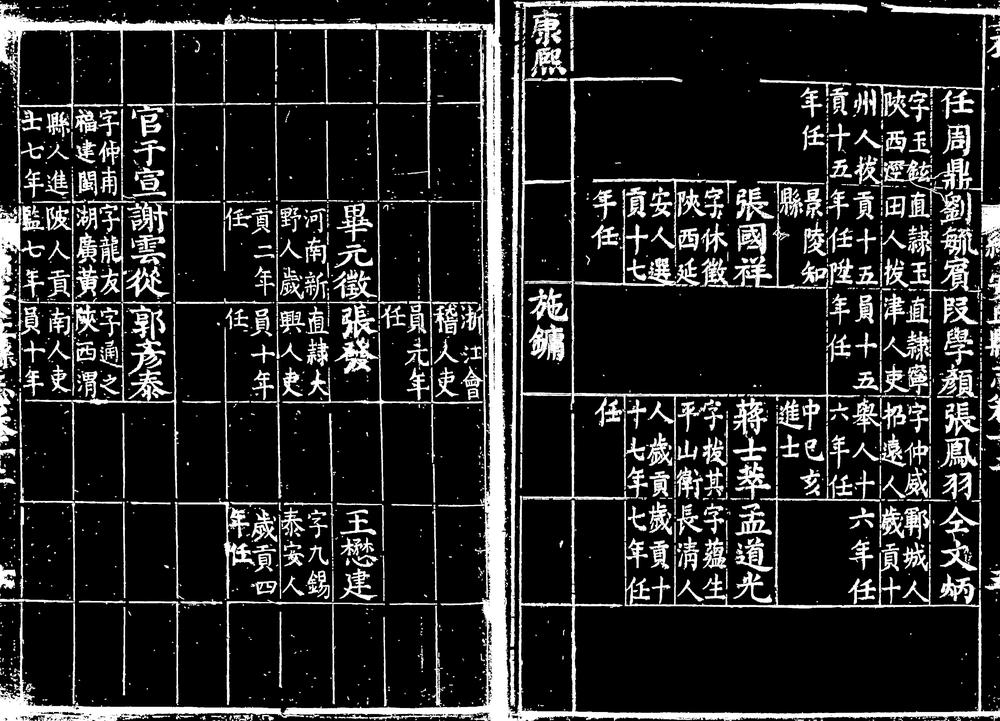 任周鼎
字玉鉉
陝西涇
州人拔
貢十五
年任
劉毓賓
直隸玉
田人拔
貢十五
年任陞
景陵知
縣
張國祥
字休徵
陝西延
安人選
貢十七
年任
段學顏
直隸寧
津人吏
員十五
年任
張鳳羽
字仲威
招遠人
舉人十
六年任
中已亥
進士
蔣士萃
字拔其
平山衛
人歲貢
十七年
任
仝文炳
鄆城人
歲貢十
六年任
孟道光
字蘊生
長清人
歲貢十
七年任
康熙
施鏞
浙江會
稽人吏
員元年
任
畢元徵
河南新
野人歲
貢二年
任
張發
直隸大
興人吏
員十年
任
王懋建
字九錫
泰安人
歲貢四
年任
官于宣
字仲甫
福建閩
縣人進
士七年
謝雲從
字龍友
湖廣黃
陂人貢
監七年
郭彥泰
字通之
陝西渭
南人吏
員十年